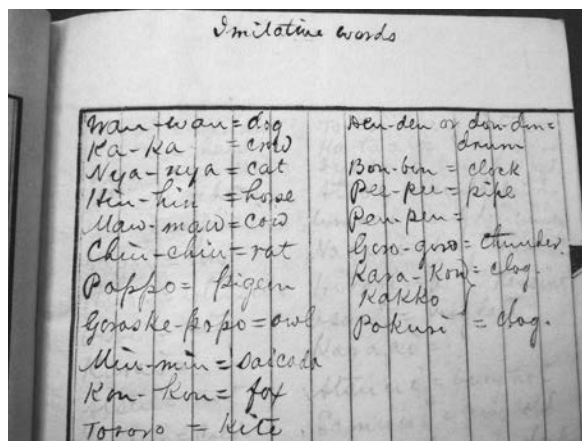 Imitative words
Wau-wau = dog
Ka-Ka = crow
Nya-nya = cat
Hin-hin = horse
Maw-maw = cow
Chiu-chiu = rat
Pappo = pigeon
Goroske-popo = owl
Min-min = saicada
Kon-Kon = fox
Tororo = Kite
Den-den or don-don =
drum
Bon-bon = clock
Pee-pee = pipe
Pen-pen =
Goro-goro = thunder.
Kara-Kon } = clog.
Kakko
Pokuri = clog.